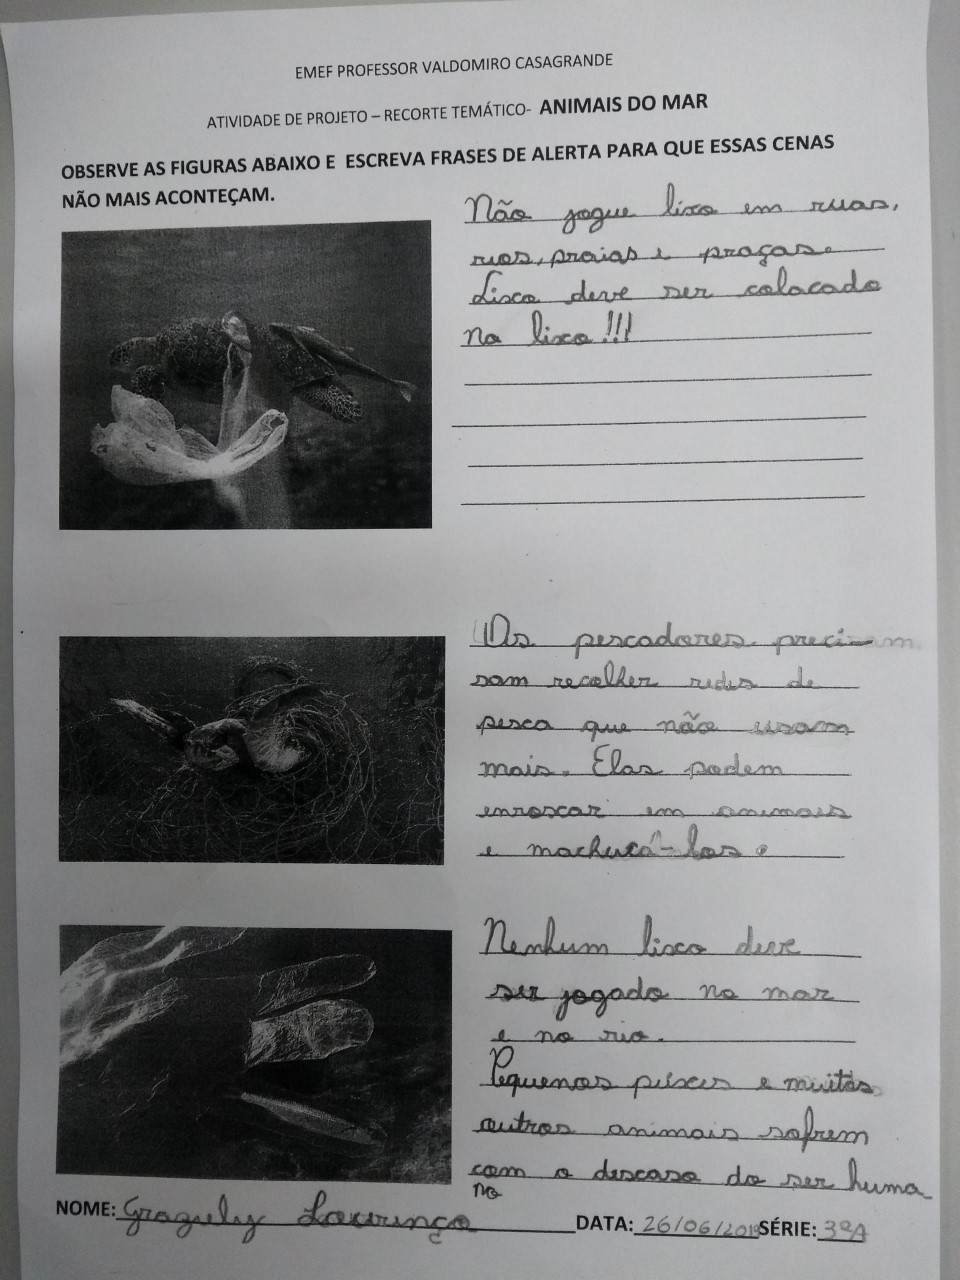 EMEF PROFESSOR VALDOMIRO CASAGRANDE
ATIVIDADE DE PROJETO – RECORTE TEMÁTICO- ANIMAIS DO MAR
OBSERVE AS FIGURAS ABAIXO E ESCREVA FRASES DE ALERTA PARA QUE ESSAS CENAS
NÃO MAIS ACONTEÇAM.
Não jogue lixo em ruas,
rios, praias e praças.
Lixo deve ser colocado
no lixo!!!
Os pescadores preci-
sam recolher redes de
pesca que não usam
mais. Elas podem
enroscar em animais
e machucá-los.
Nenhum lixo deve
ser jogado no mar
e no rio.
Pequenos peixes e muitos
outros animais sofrem
com o descaso do ser huma
no
NOME: Lourenço DATA: 26/06/2019 SÉRIE: 3ºA